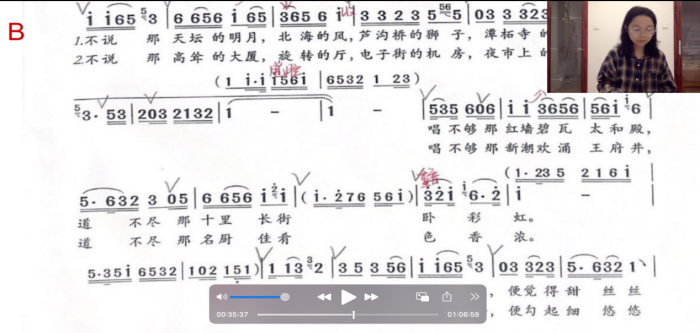 B
i i65 5 3 | 6 656 i 65 | 3 65 6 i | 3 3 2 3 5 5 | 03 3 323
1.不说 那 天坛 的 明月, 北 海 的 风, 芦 沟 桥 的 狮 子, 潭 柘 寺 的
2.不说 那 高耸 的 大厦, 旋 转 的 厅, 电 子 街 的 机 房, 夜 市 上 的
(1 i·i 1561 | 6532 1 23)
3· 53 | 203 2132 | 1 - | 1 - | 535 606 | i i 3656 | 561 6
唱 不 够 那 红 墙 碧 瓦 太 和 殿,
唱 不 够 那 新 潮 欢 涌 王 府 井,
(1· 23 5 2 1 6 i
5· 632 3 05 | 6 656 i i | (i· 276 561) | 321 6·2 | i -
道 不 尽 那 十 里 长 街 卧 彩 虹。
道 不 尽 那 名 厨 佳 肴 色 香 浓。
5·351 6532 | 102 151) | 1 13 2 | 3 5 3 56 | i i65 3 | 03 323 | 5· 632 1 |
, 便 觉 得 甜 丝 丝
, 便 勾 起 细 悠 悠
00:35:37 01:06:59